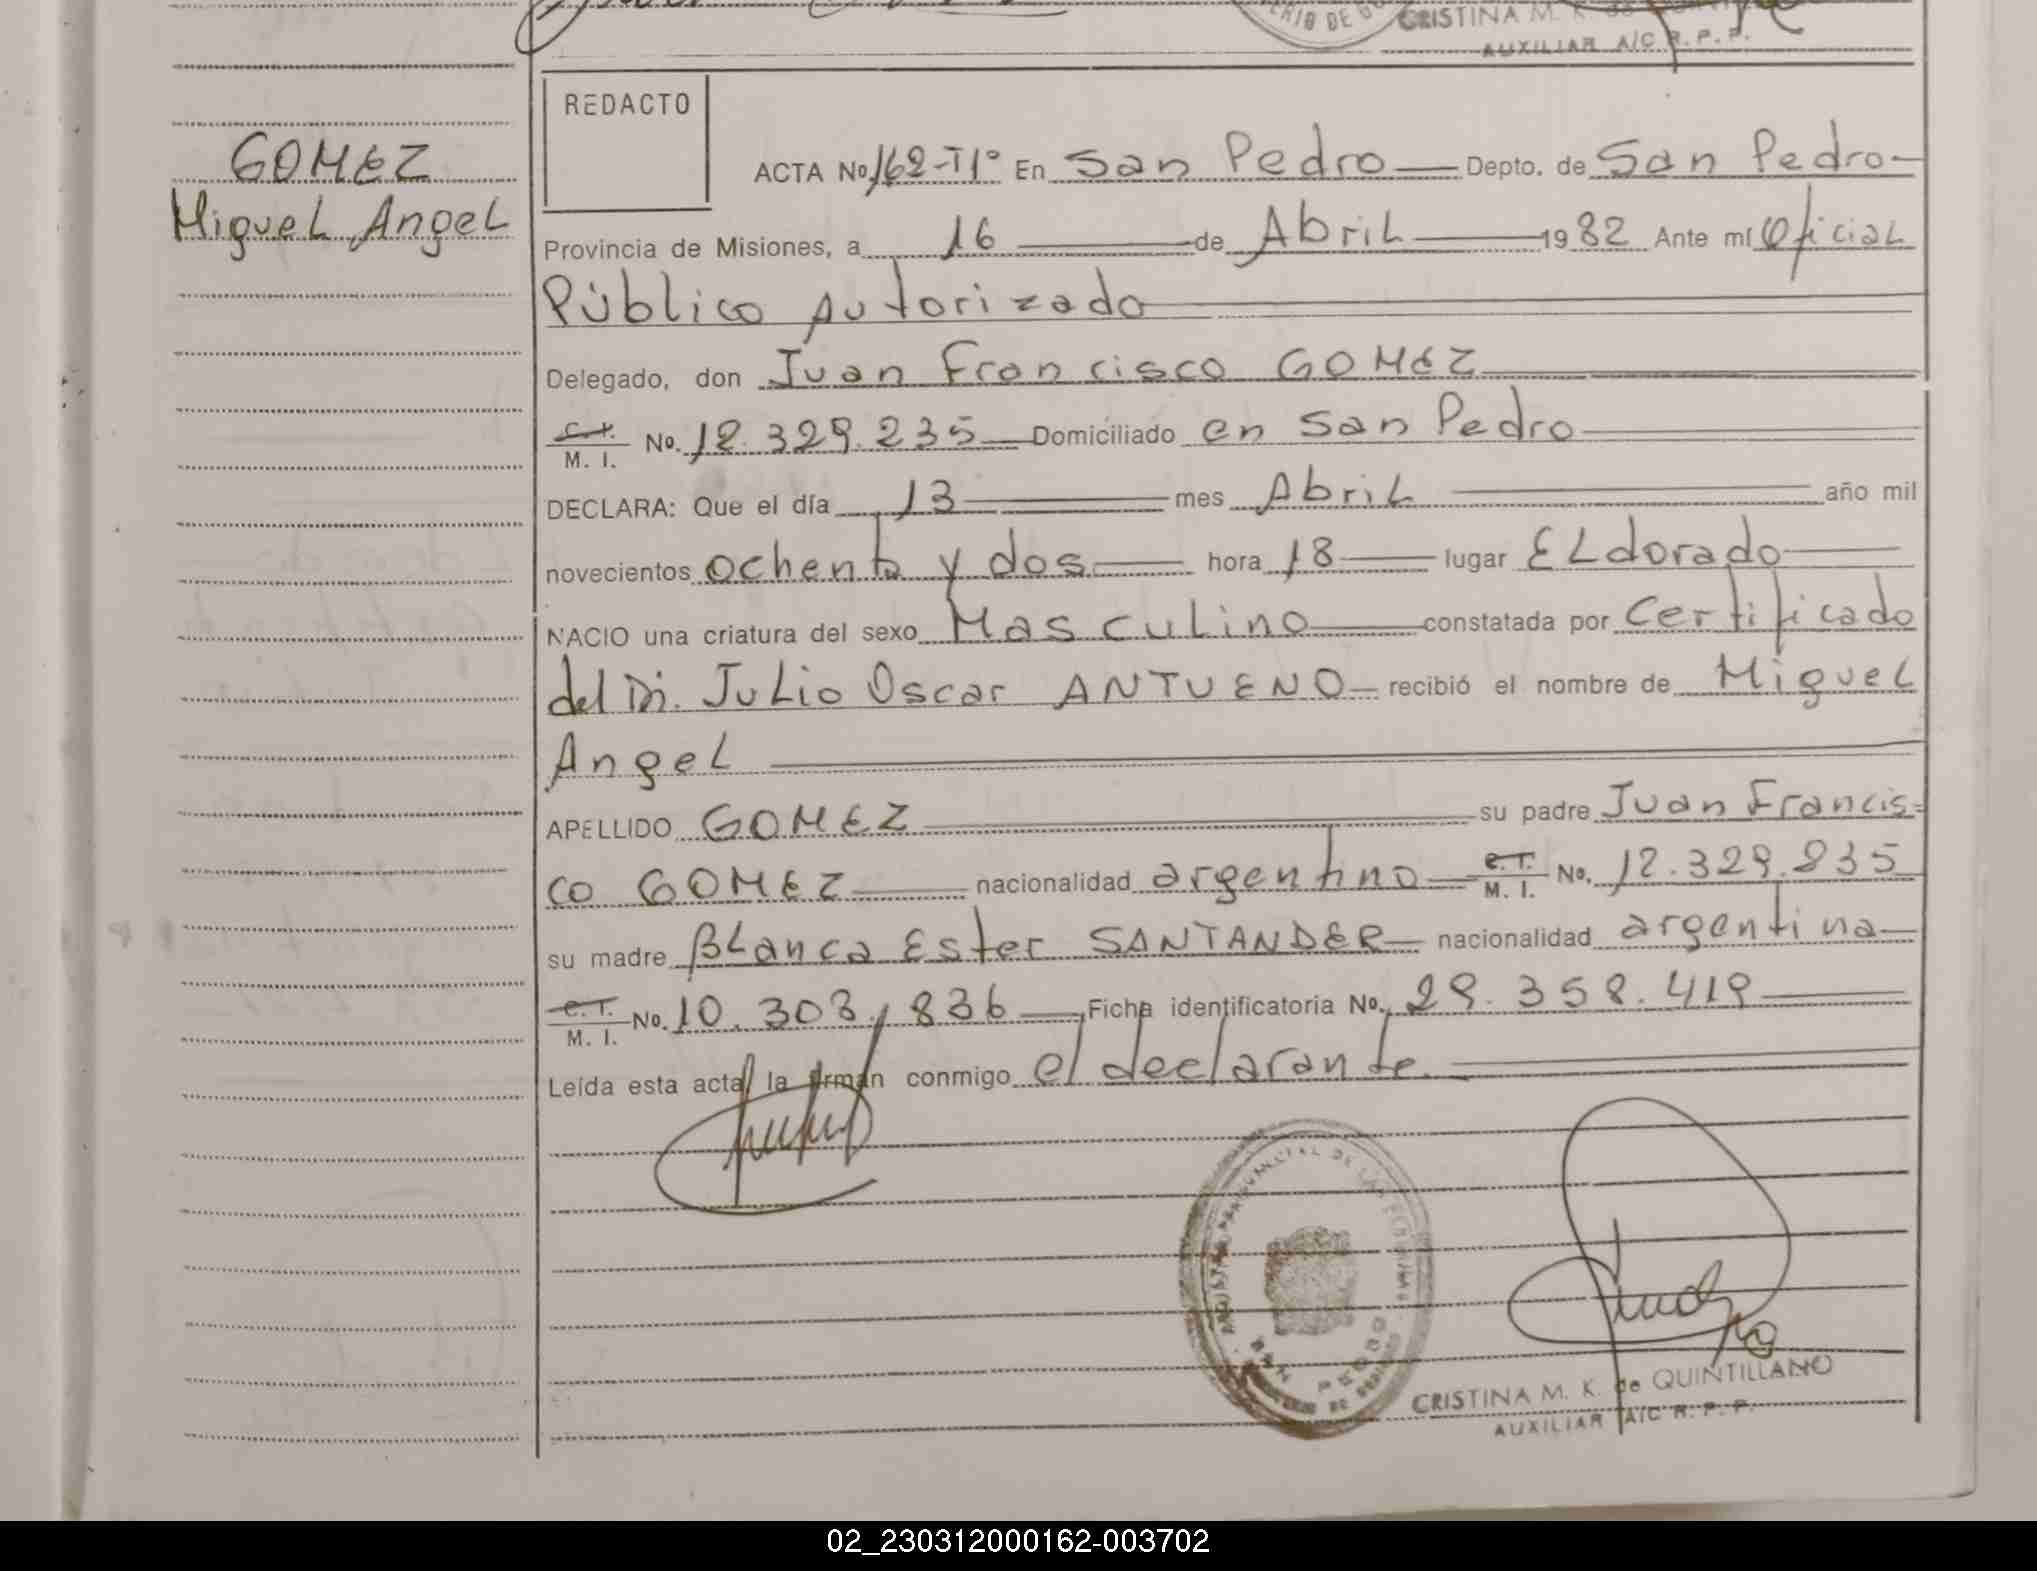 CRISTINA M. K. de
AUXILIAR A/C R. P. P.
REDACTO
GOMEZ
Miguel Angel
ACTA No 162-Tıº En San Pedro Depto. de San Pedro
Provincia de Misiones, a 16 de Abril 1982 Ante mí Oficial
Público Autorizado
Delegado, don Juan Francisco GOMEZ
C.I.
M. I. No. 12.329.235 Domiciliado en San Pedro
DECLARA: Que el día 13 mes Abril año mil
novecientos ochenta y dos hora 18 lugar ELdorado
NACIO una criatura del sexo Masculino constatada por Certificado
del Dr. Julio Oscar ANTUENO recibió el nombre de Miguel
Angel
APELLIDO GOMEZ su padre Juan Francis=
co GOMEZ nacionalidad argentino C.I. M. I. No. 12.329.235
su madre Blanca Ester SANTANDER nacionalidad argentina
C.I. M. I. No. 10.303.836 Ficha identificatoria No. 29.358.419
Leída esta acta, la firman conmigo el declarante.
SAN PEDRO
CRISTINA M. K. de QUINTILLANO
AUXILIAR A/C R. P. P.
02_230312000162-003702